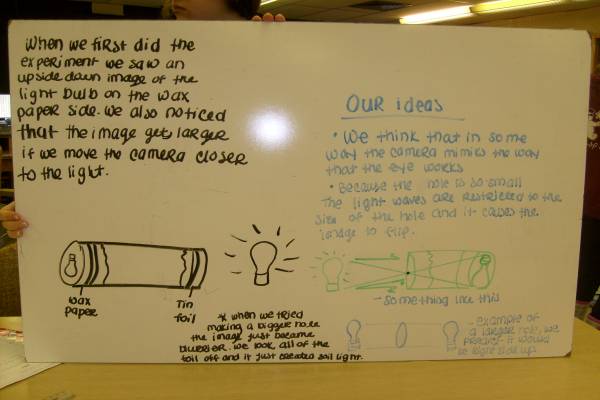 When we first did the
experiment we saw an
upside down image of the
light bulb on the wax
paper side. We also noticed
that the image get larger
if we move the camera closer
to the light.
OUR ideas
• We think that in some
way the camera mimiks the way
that the eye works
• Because the hole is so small
the light waves are restricted to the
size of the hole and it causes the
image to flip.
wax
paper
Tin
foil
* when we tried
making a bigger hole
the image just became
bluerier. We took all of the
foil off and it just created soil light.
- something like this
- example of
a larger hole. We
predict it would
be right side up.